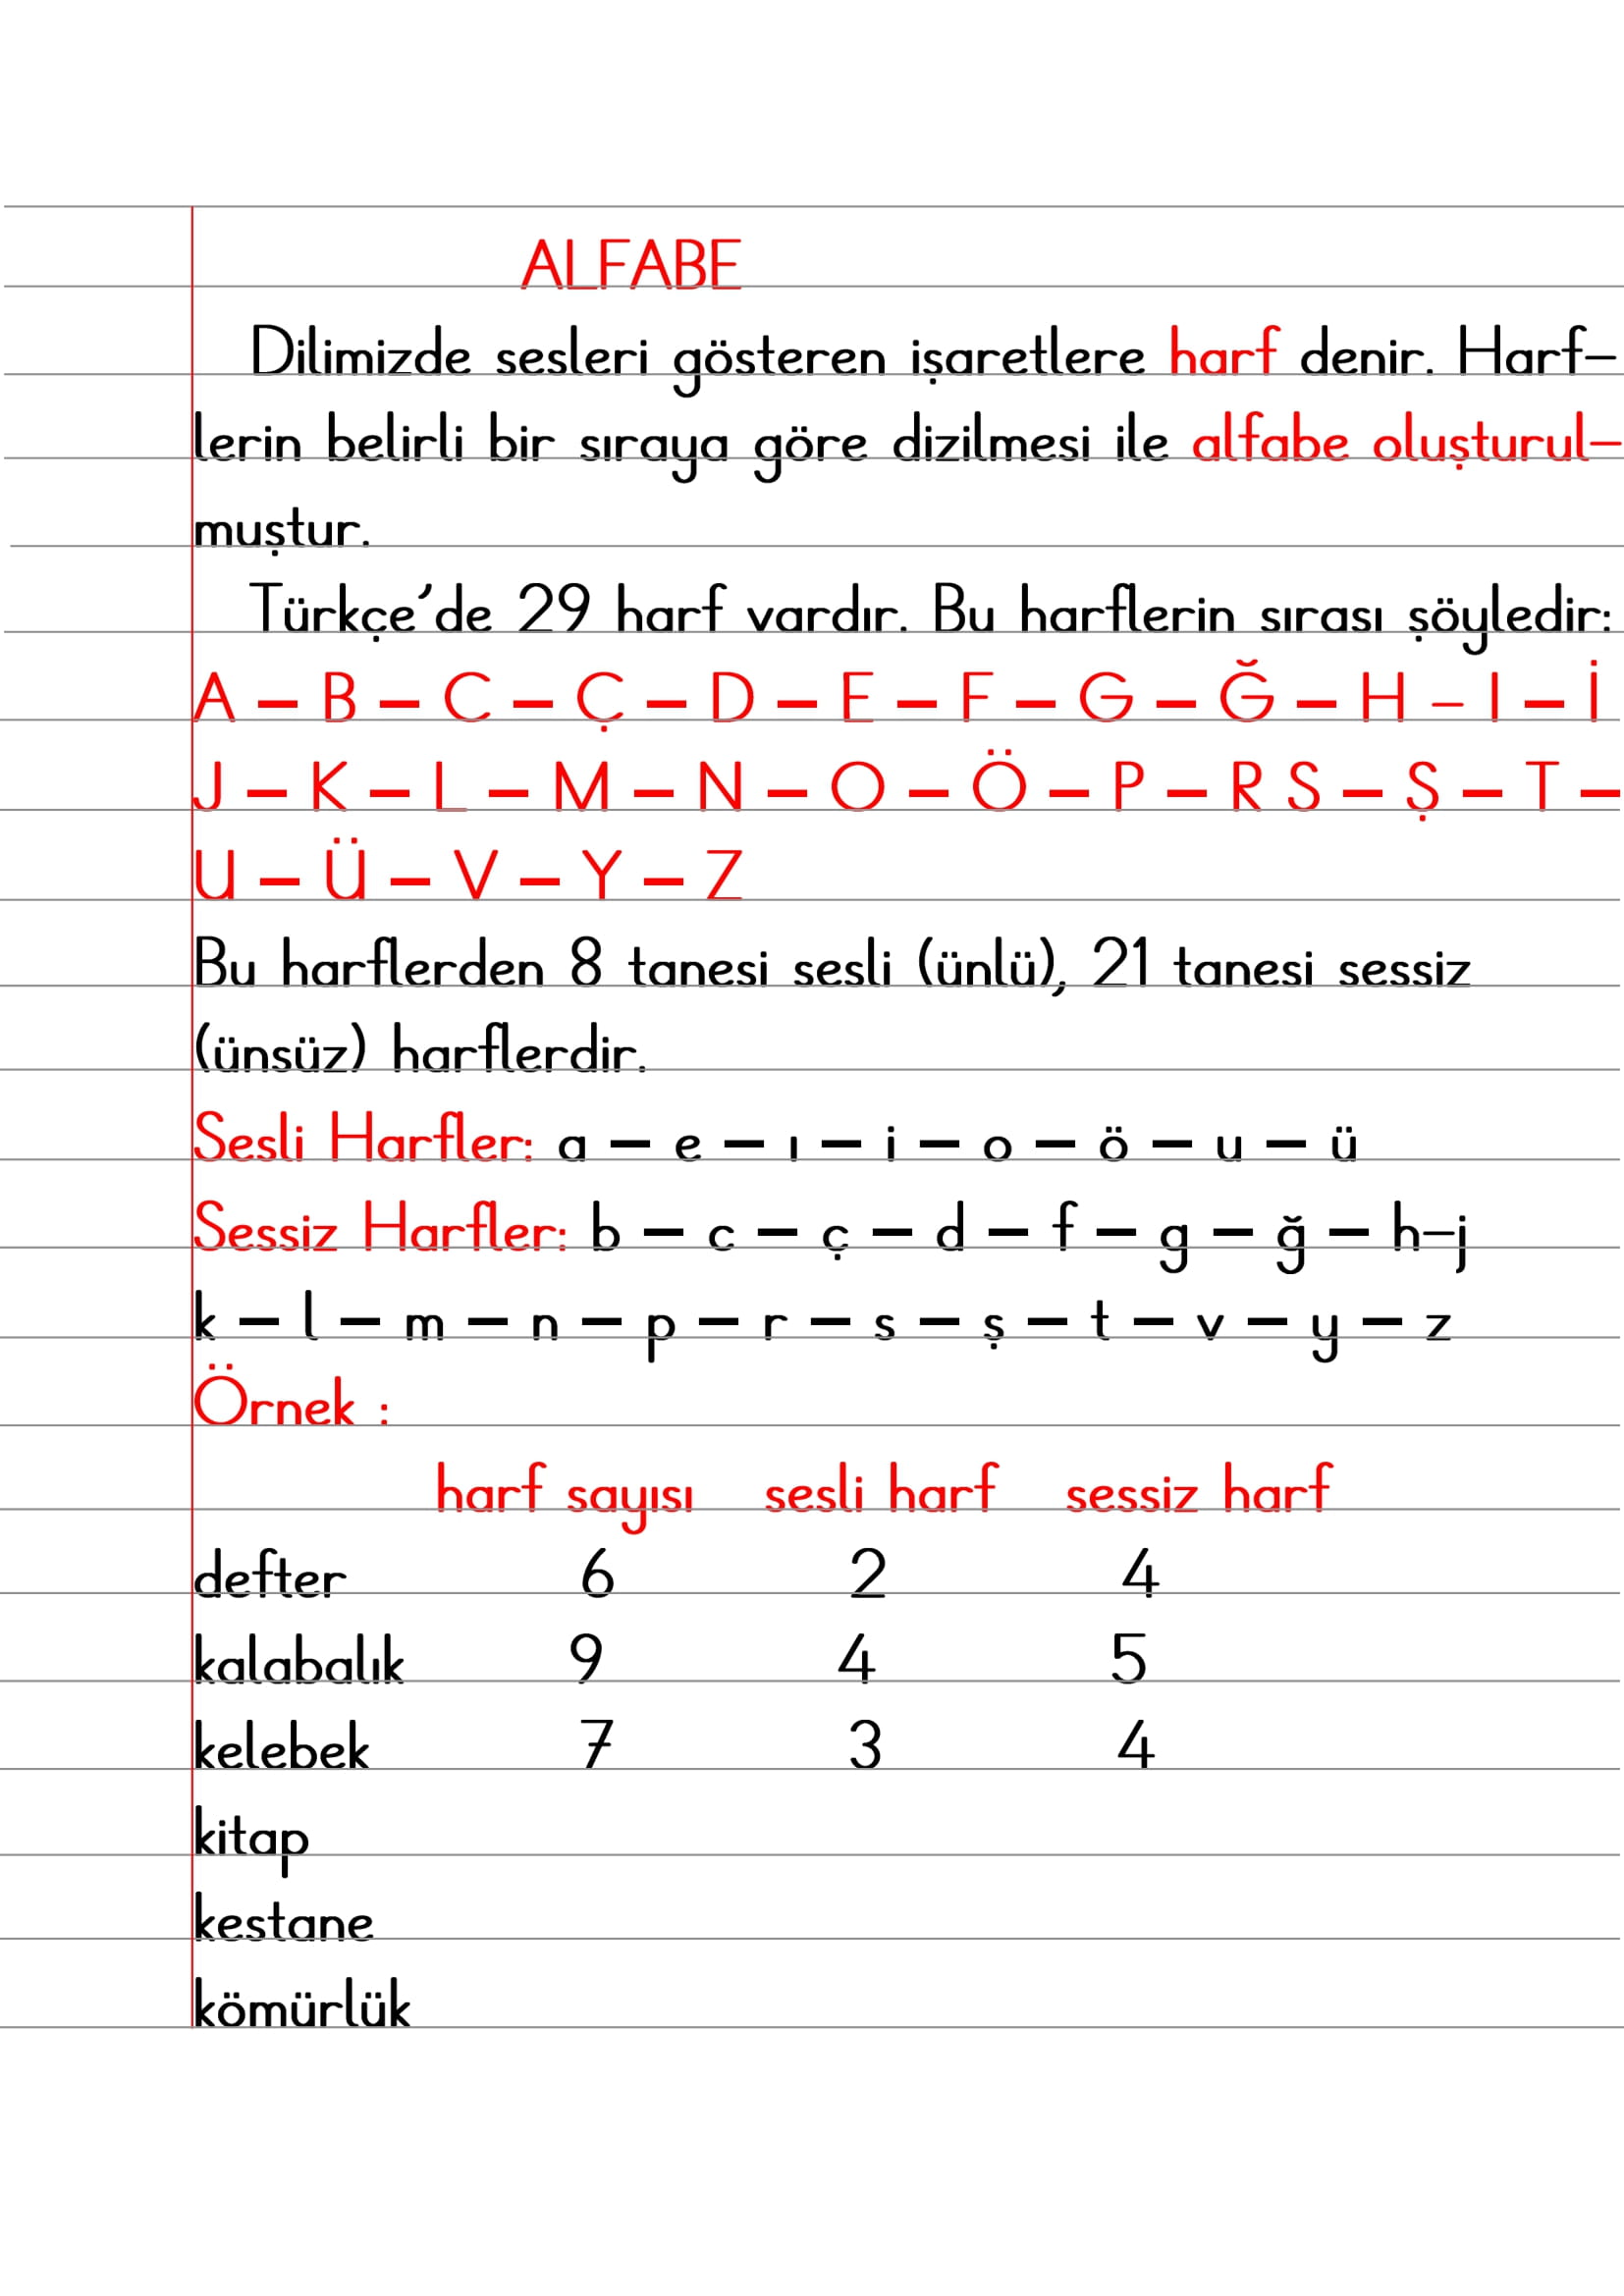 ALFABE
Dilimizde sesleri gösteren işaretlere harf denir. Harf-
lerin belirli bir sıraya göre dizilmesi ile alfabe oluşturul-
muştur.
Türkçe'de 29 harf vardır. Bu harflerin sırası şöyledir:
A – B – C – Ç – D – E – F – G – Ğ – H – I – İ
J – K – L – M – N – O – Ö – P – R S – Ş – T –
U – Ü – V – Y – Z
Bu harflerden 8 tanesi sesli (ünlü), 21 tanesi sessiz
(ünsüz) harflerdir.
Sesli Harfler: a – e – ı – i – o – ö – u – ü
Sessiz Harfler: b – c – ç – d – f – g – ğ – h-j
k – l – m – n – p – r – s – ş – t – v – y – z
Örnek :
harf sayısı sesli harf sessiz harf
defter 6 2 4
kalabalık 9 4 5
kelebek 7 3 4
kitap
kestane
kömürlük